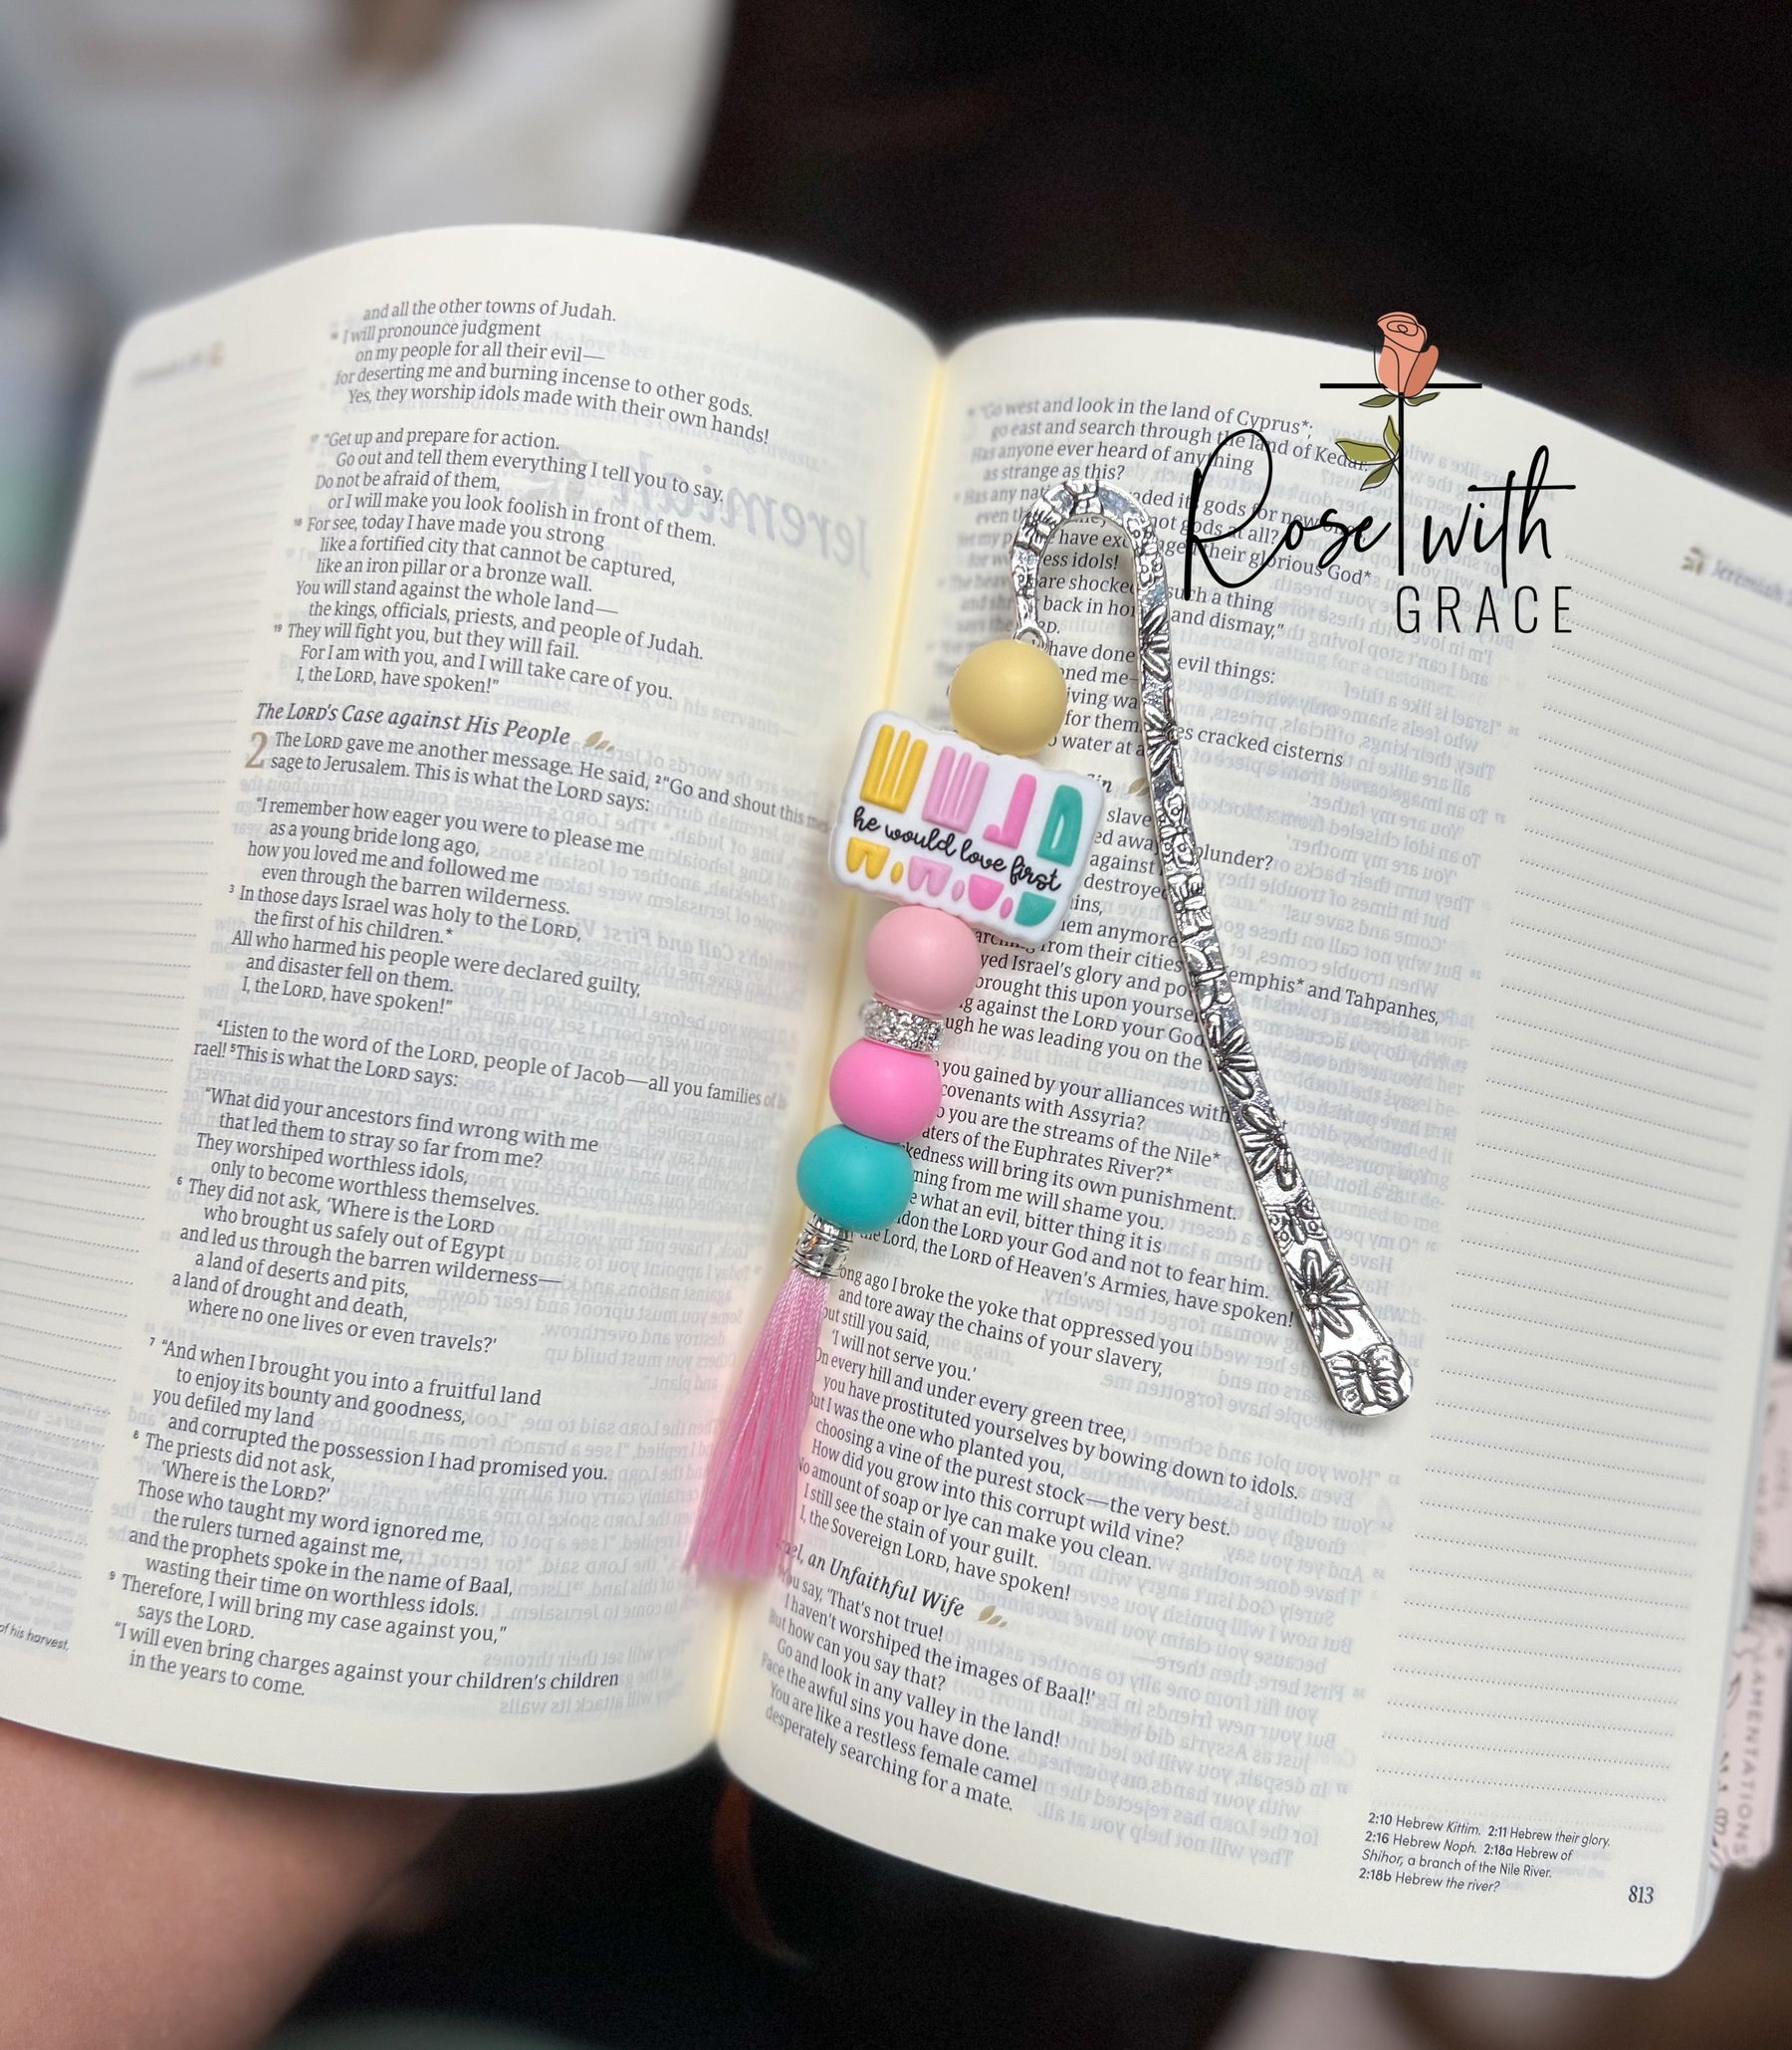 and all the other towns of Judah.
16 I will pronounce judgment
on my people for all their evil—
for deserting me and burning incense to other gods.
Yes, they worship idols made with their own hands!
17 “Get up and prepare for action.
Go out and tell them everything I tell you to say.
Do not be afraid of them,
or I will make you look foolish in front of them.
18 For see, today I have made you strong
like a fortified city that cannot be captured,
like an iron pillar or a bronze wall.
You will stand against the whole land—
the kings, officials, priests, and people of Judah.
19 They will fight you, but they will fail.
For I am with you, and I will take care of you.
I, the LORD, have spoken!”
The LORD's Case against His People
2 The LORD gave me another message. He said, 2“Go and shout this
sage to Jerusalem. This is what the LORD says:
“I remember how eager you were to please me
as a young bride long ago,
how you loved me and followed me
even through the barren wilderness.
3 In those days Israel was holy to the LORD,
the first of his children.*
All who harmed his people were declared guilty,
and disaster fell on them.
I, the LORD, have spoken!”
4Listen to the word of the LORD, people of Jacob—all you families of
rael! 5This is what the LORD says:
“What did your ancestors find wrong with me
that led them to stray so far from me?
They worshiped worthless idols,
only to become worthless themselves.
6 They did not ask, ‘Where is the LORD
who brought us safely out of Egypt
and led us through the barren wilderness—
a land of deserts and pits,
a land of drought and death,
where no one lives or even travels?’
7 “And when I brought you into a fruitful land
to enjoy its bounty and goodness,
you defiled my land
and corrupted the possession I had promised you.
8 The priests did not ask,
‘Where is the LORD?’
Those who taught my word ignored me,
the rulers turned against me,
and the prophets spoke in the name of Baal,
wasting their time on worthless idols.
9 Therefore, I will bring my case against you,”
says the LORD.
“I will even bring charges against your children's children
in the years to come.
of his harvest.
“Go west and look in the land of Cyprus*;
go east and search through the land of Kedar.
Has anyone ever heard of anything
as strange as this?
Has any gods for new
even not gods at all?
have their glorious God*
idols!
are shocked such a thing
back in and dismay,”
have done evil things:
me—
living
for them cracked cisterns
water at
slave
plunder?
against
destroyed
anymore
from their cities Memphis* and Tahpanhes,
Israel's glory and
brought this upon
against the LORD your God
though he was leading you on the
you gained by your alliances with
covenants with Assyria?
you are the streams of the Nile*
waters of the Euphrates River?*
will bring its own punishment.
from me will shame you.
what an evil, bitter thing it is
the LORD your God and not to fear him.
the Lord, the LORD of Heaven's Armies, have spoken!
long ago I broke the yoke that oppressed you
and tore away the chains of your slavery,
but still you said,
‘I will not serve you.’
On every hill and under every green tree,
you have prostituted yourselves by bowing down to idols.
But I was the one who planted you,
choosing a vine of the purest stock—the very best.
How did you grow into this corrupt wild vine?
No amount of soap or lye can make you clean.
I still see the stain of your guilt.
I, the Sovereign LORD, have spoken!
an Unfaithful Wife
You say, ‘That's not true!
I haven't worshiped the images of Baal!’
But how can you say that?
Go and look in any valley in the land!
Face the awful sins you have done.
You are like a restless female camel
desperately searching for a mate.
2:10 Hebrew Kittim. 2:11 Hebrew their glory.
2:16 Hebrew Noph. 2:18a Hebrew of
Shihor, a branch of the Nile River.
2:18b Hebrew the river?
813
WWJD
he would love first
Rose with
GRACE
LAMENTATIONS